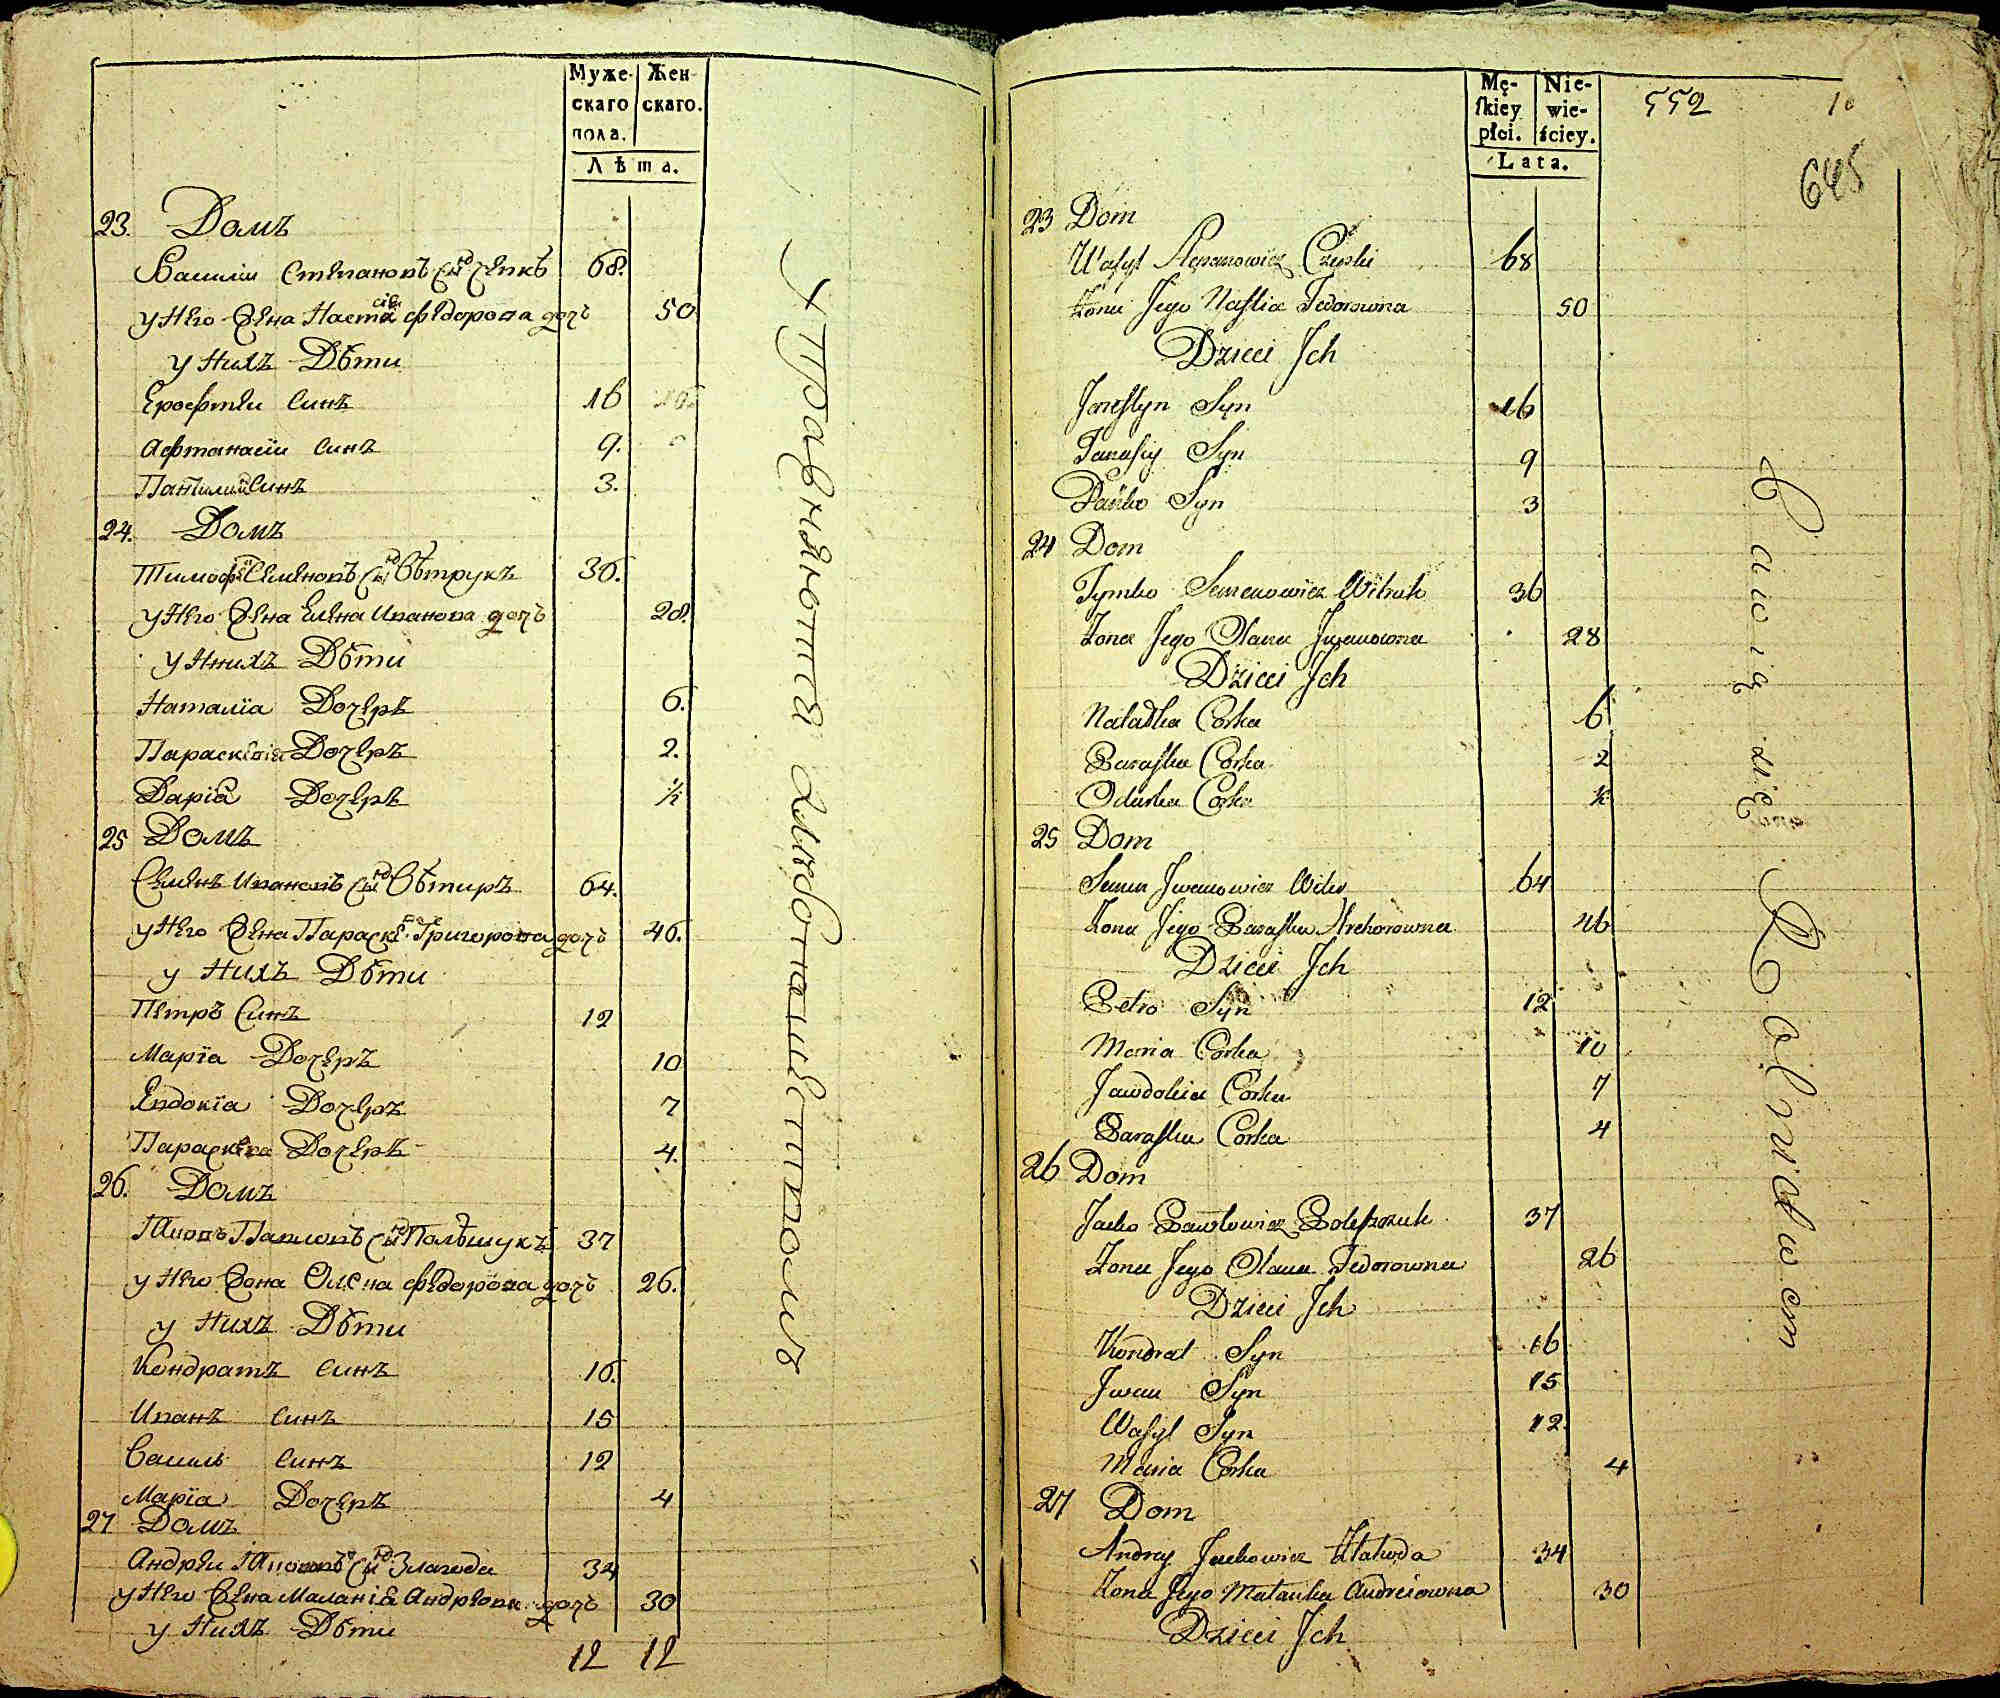 Муже-
скаго
пола.
Жен-
скаго.
Лѣта.
23. Домъ
Василіи Степановъ Снъ 68.
у Него Жена Настасія Федорова дочъ 50
у Нихъ Дѣти
Ерофтеи Синъ 16
Афтанасіи Синъ 9.
Синъ 3.
24. Домъ
Тимофѣй Семеновъ Снъ Вѣтрукъ 36.
у Него Жена Елена Иванова дочъ 28.
у Ннихъ Дѣти
Наталіа Дочеръ 6.
Параскевіа Дочеръ 2.
Даріа Дочеръ ½
25 Домъ
Семенъ Ивановъ Снъ Вѣтиръ 64.
у Него Жена Параске. Григорова дочъ 46.
у Нихъ Дѣти
Петръ Синъ 12
Маріа Дочеръ 10
Евдокіа Дочеръ 7
Дочеръ 4.
26. Домъ
Павловъ Снъ Полѣшукъ 37
у Него Жона Олена Федорова дочъ 26.
у Нихъ Дѣти
Кондратъ Синъ 16.
Иванъ Синъ 15
Василь Синъ 12
Маріа Дочеръ 4
27 Домъ
Андреи Снъ Злагода 34
у Него Жена Маланіа Андреова дочъ 30
у Нихъ Дѣти
12 12
Управляется
Mę-
skiey
płci.
Nie-
wie-
ściey.
Lata.
552
10
645
23 Dom
Wasyl Stepanowicz 68
Żona Jego Nastia Fedorowna 50
Dzieci Jch
Syn 16
Syn 9
Syn 3
24 Dom
Tymko Semenowicz Witruk 36
Żona Jego Olena Jwanowna 28
Dzieci Jch
Natałka Corka 6
Paraska Corka 2
Odarka Corka ½
25 Dom
Semen Jwanowicz Witer 64
Żona Jego Paraska Hrehorowna 46
Dzieci Jch
Petro Syn 12
Maria Corka 10
Jawdokia Corka 7
Paraska Corka 4
26 Dom
Jacko Pawłowicz Poleszczuk 37
Żona Jego Olena Fedorowna 26
Dzieci Jch
Kondrat Syn 16
Jwan Syn 15
Wasyl Syn 12
Maria Corka 4
27 Dom
Andrey Jackowicz Złahoda 34
Żona Jego Małanka Andreiowna 30
Dzieci Jch
Bawią się Rolnictwem